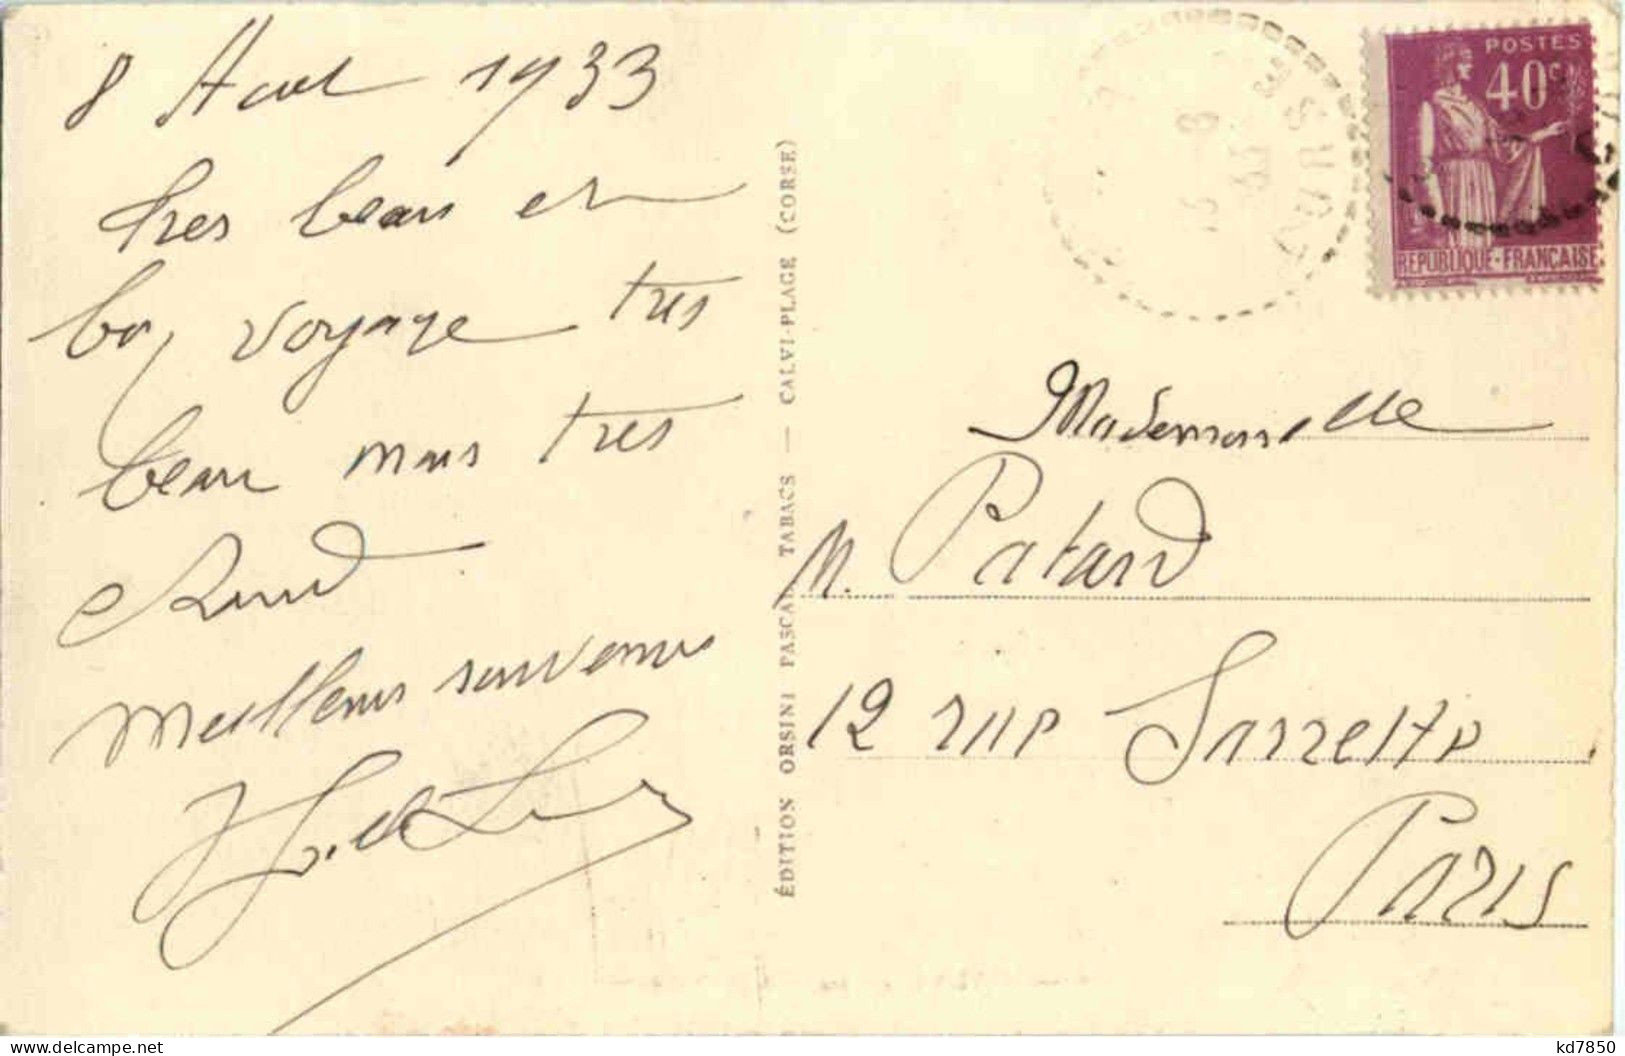 8 Aout 1933
tres beau et
bon voyage tres
beau mais tres
chaud
Meilleurs souvenirs
ÉDITION ORSINI PASCAL TABACS — CALVI-PLAGE (CORSE)
13 - 8
33
POSTES
40c
REPUBLIQUE-FRANÇAISE
Mademoiselle
M. Patard
12 rue Sarrette
Paris
delcampe.net
kd7850